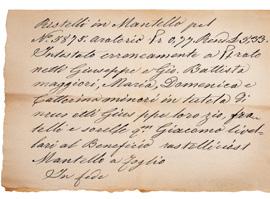 Restelli in Mantello pel
N. 3875. aratorio Pr 0,77 Rend L 3,33.
Intestato erroneamente a
netti Giuseppe e Gio. Battista
maggiori, Maria, Domenica e
Catterina minori in tutela di
Giuseppe loro zio, fra-
telli e sorelle qm Giacomo livel-
lari al Beneficio
Mantello a foglio
In fede